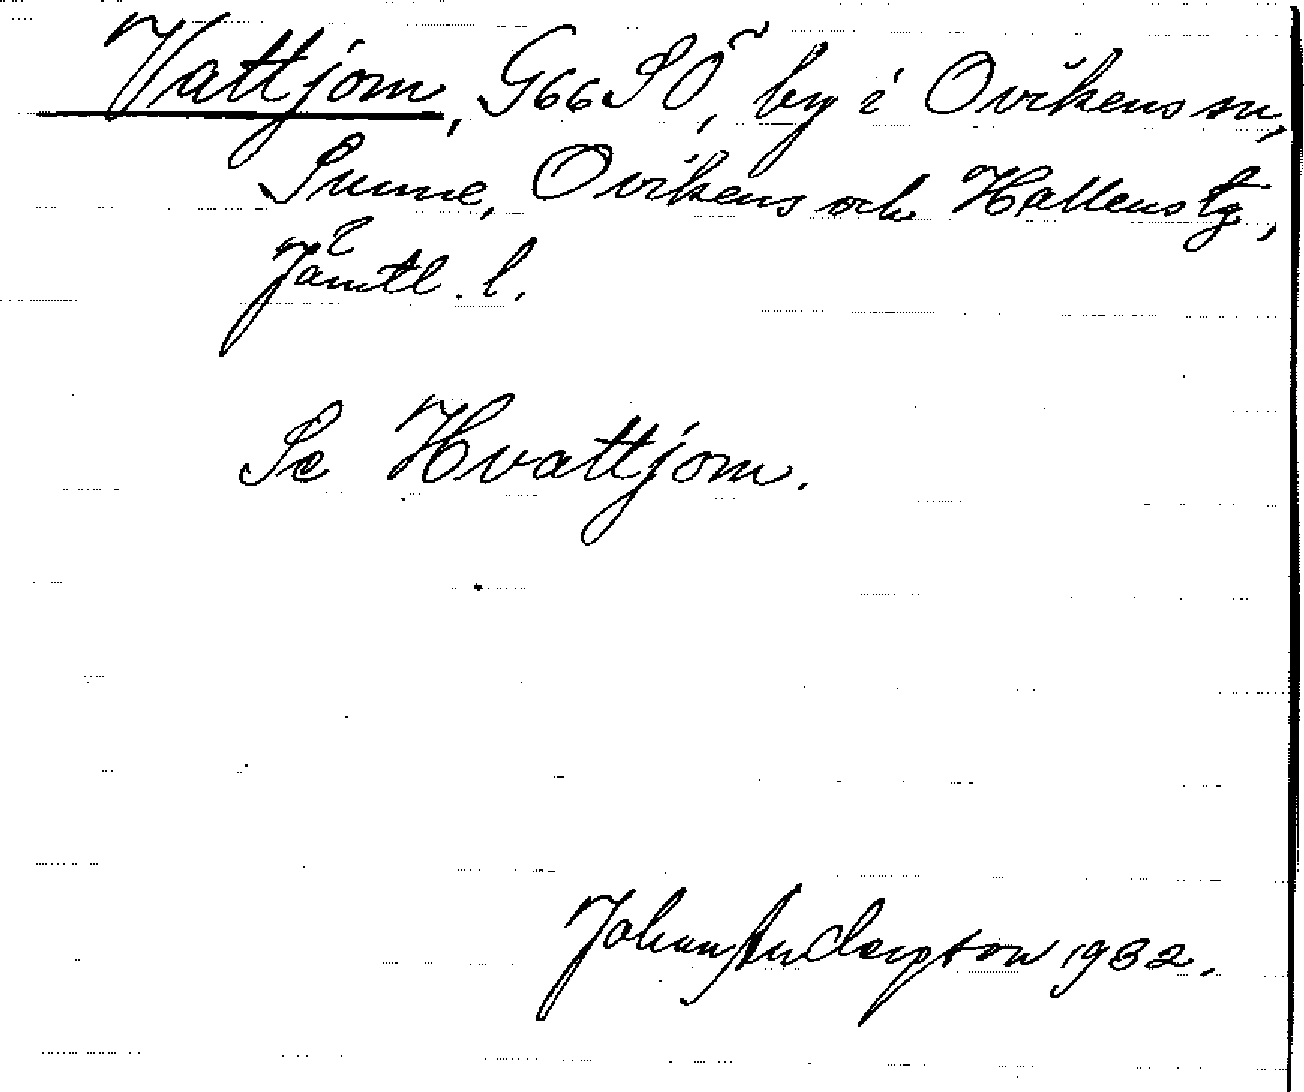 Vattjom, G66SÖ, by i Ovikens sn,
Sunne, Ovikens och Hallens tg,
Jämtl. l.
Se Hvattjom.
Johan Anderson 1932.